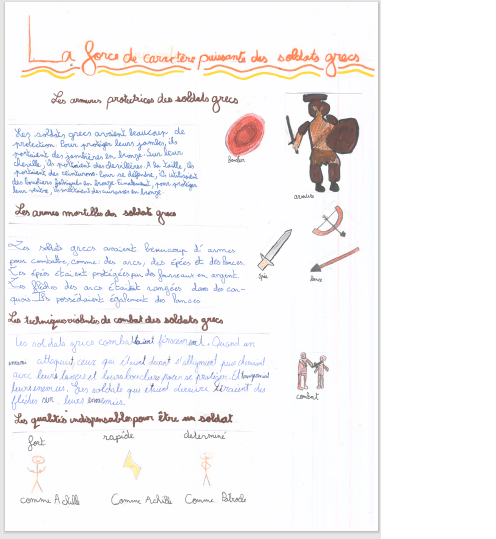 La force de caractère puissante des soldats grecs
Les armures protectrices des soldats grecs
Les soldats grecs avaient beaucoup de
protection. Pour protéger leurs jambes, ils
portaient des jambières en bronze. Sur leur
cheville, ils portaient des chevillères. A la taille, ils
portaient des ceinturons. Pour se défendre, ils utilisaient
des boucliers fabriqués en bronze. Finalement, pour protéger
leur ventre, ils mettaient des cuirasses en bronze.
bouclier
armure
Les armes mortelles des soldats grecs
Les soldats grecs avaient beaucoup d'armes
pour combattre, comme: des arcs, des épées et des lances.
Les épées étaient protégées par des fourreaux en argent.
Les flèches des arcs étaient rangées dans des car-
quois. Ils possédaient également des lances
épée
lance
Les techniques violentes de combat des soldats grecs
Les soldats grecs combattaient férocement. Quand un
ennemi attaquait, ceux qui étaient devant s'alignent puis
avec leurs lances et leurs boucliers pour se protéger. Et
leurs ennemis. Les soldats qui étaient derrière tiraient des
flèches sur leurs ennemis.
combat
Les qualités indispensables pour être un soldat
fort
rapide
determiné
comme Achille
Comme Achille
Comme Patrocle